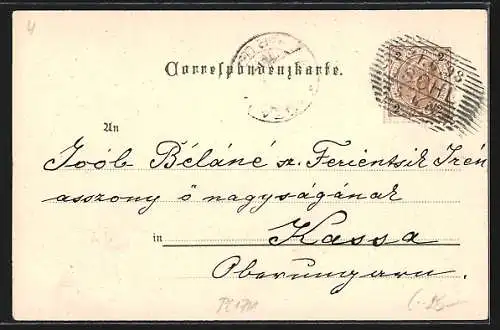 4
Correspondenzkarte.
An
Joób Béláné sz. Ferientsik Irén
asszony ő nagyságának
in Kassa
Oberungarn.